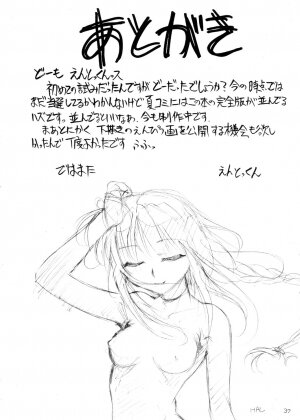 あとがき
どーも えんとっくんっス
初めての試みだったんですがどーだったでしょうか?今の時点では
まだ当選してるかわかんないけど夏コミにはこの本の完全版が並んでる
ハズです。並んでるといいなあ、今も制作中です
まあとにかく下描きのえんぴつ画を公開する機会も欲し
かったんで丁度よかったです ふふっ。
ではまた えんとっくん
HAL
37